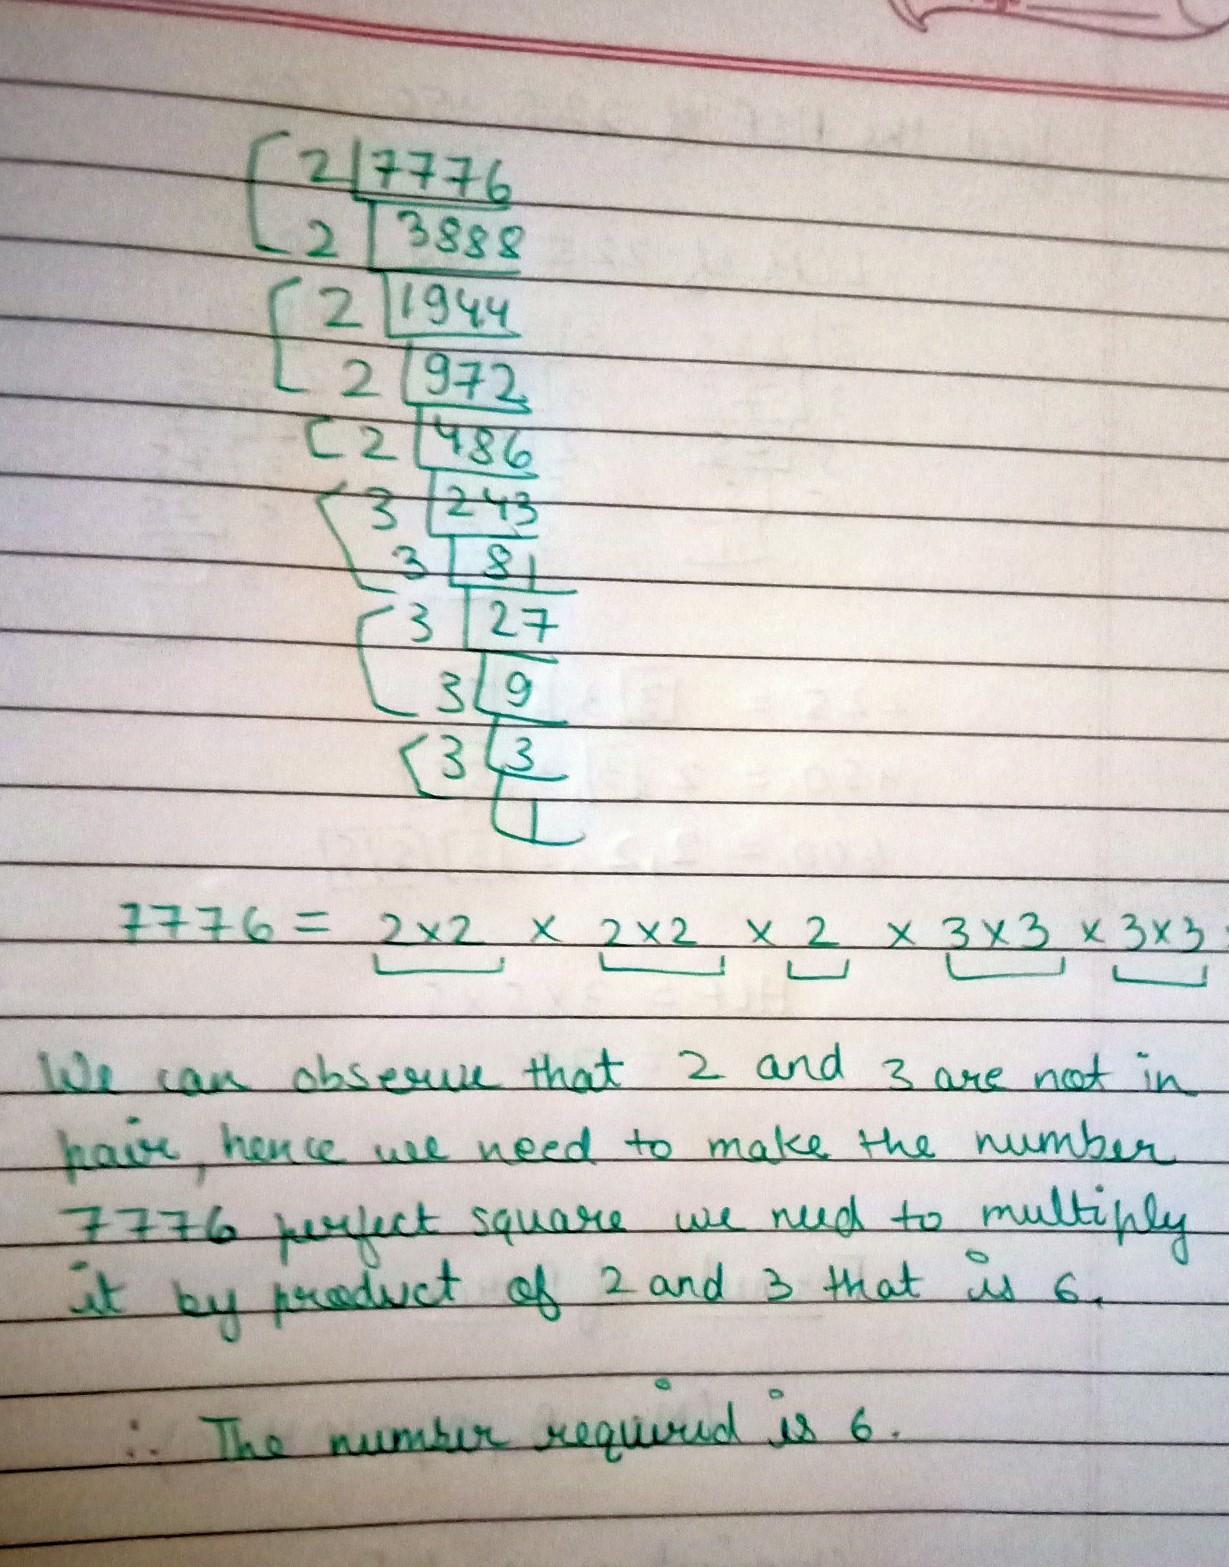 2 7776
2 3888
2 1944
2 972
2 486
3 243
3 81
3 27
3 9
3 3
1
7776 = 2×2 × 2×2 × 2 × 3×3 × 3×3
We can observe that 2 and 3 are not in
pair, hence we need to make the number
7776 perfect square we need to multiply
it by product of 2 and 3 that is 6.
∴ The number required is 6.